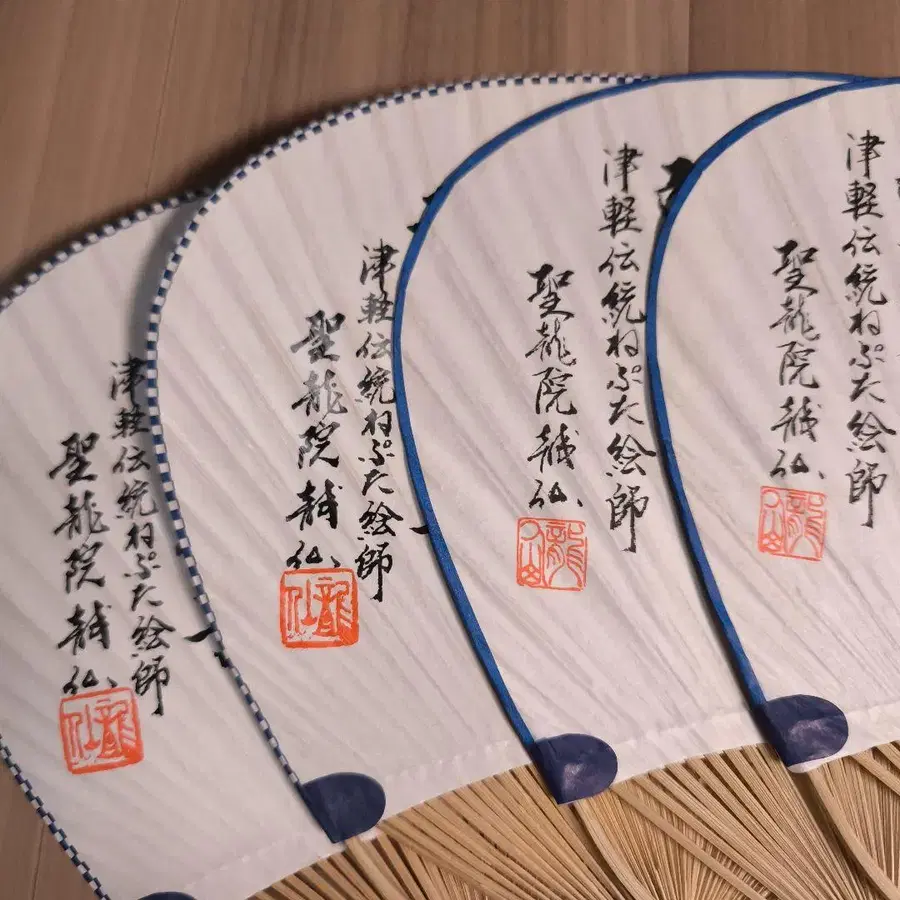 津軽伝統ねぷた絵師
聖龍院龍仙
龍仙
津軽伝統ねぷた絵師
聖龍院龍仙
龍仙
津軽伝統ねぷた絵師
聖龍院龍仙
龍仙
津軽伝統ねぷた絵師
聖龍院龍仙
龍仙